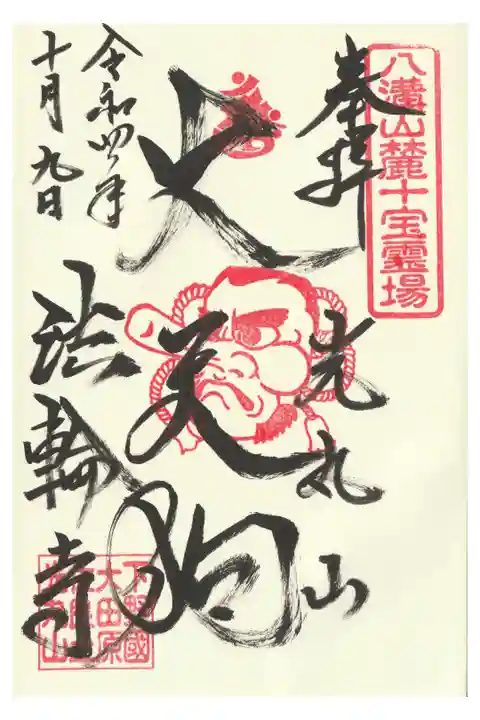 八溝山麓十宝霊場
奉拝
光丸山
大天狗
法輪寺
令和四年
十月九日
下野國
大田原
佐良土
光丸山